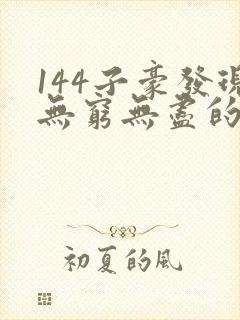 144子豪發現
無窮無盡的
初夏的風